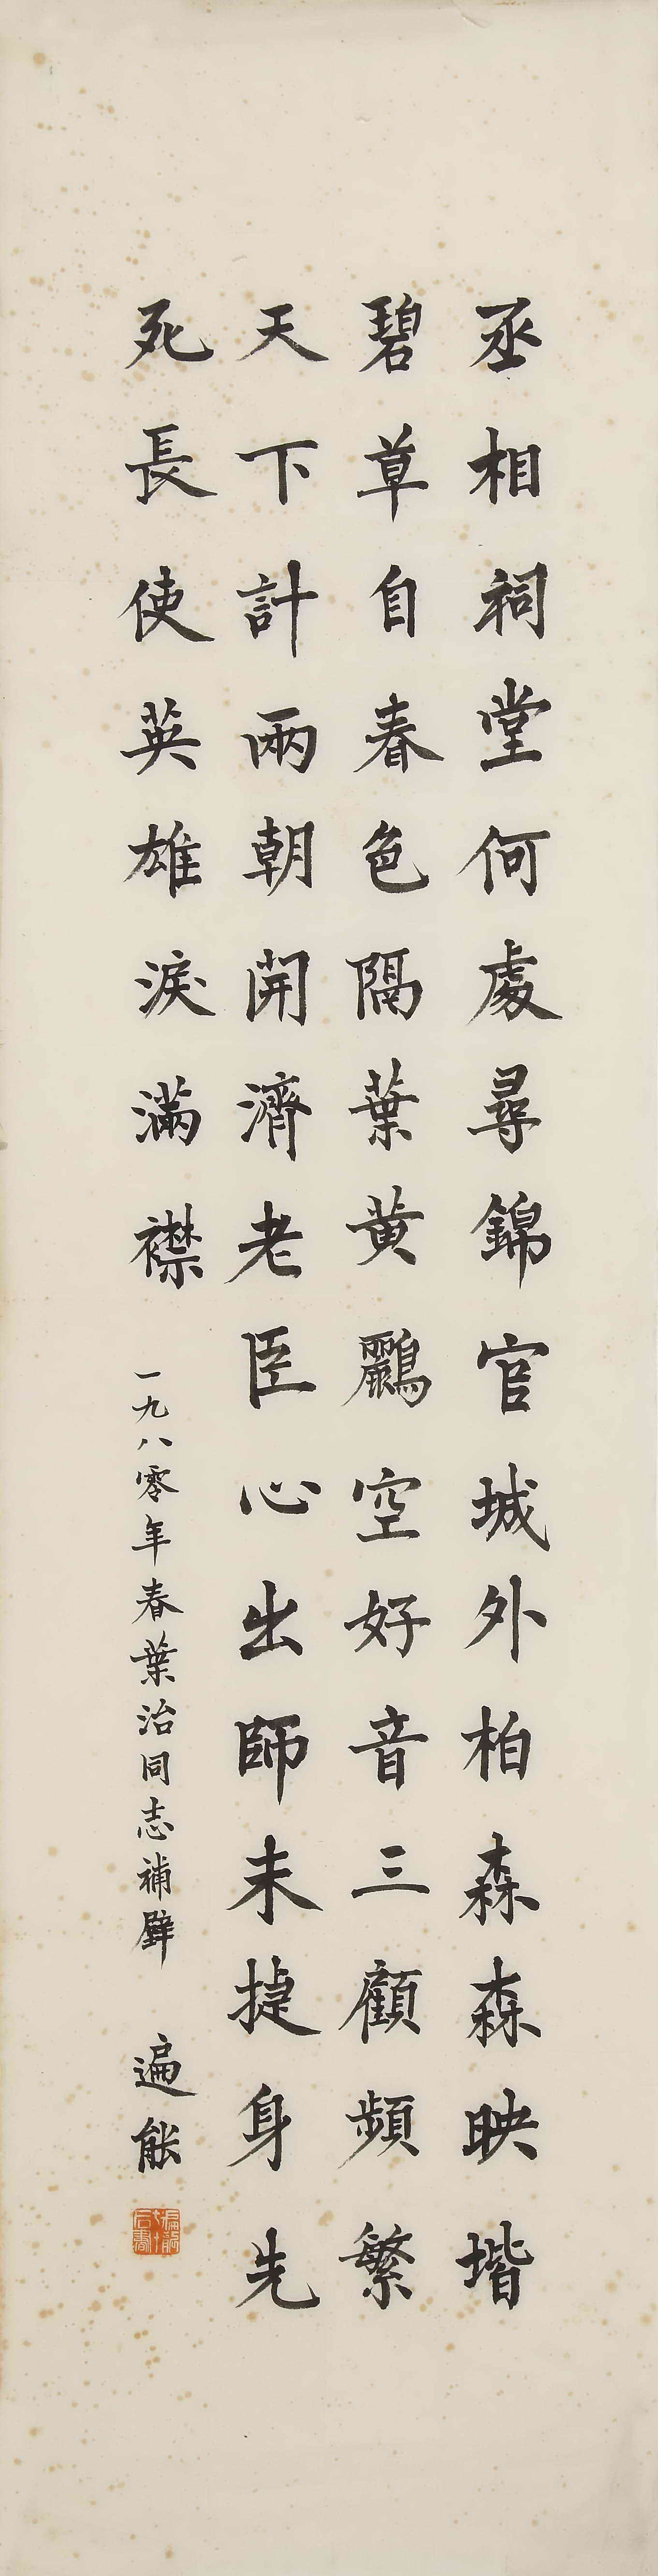 丞相祠堂何處尋錦官城外柏森森映堦
碧草自春色隔葉黃鸝空好音三顧頻繁
天下計兩朝開濟老臣心出師未捷身先
死長使英雄淚滿襟
一九八零年春葉治同志補壁
遍能